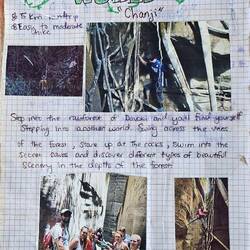 "Chanji"
8.5 km
Easy to moderate
Step into the rainforest of Davao and you'll find yourself
Stepping into another world. Swing across the vines
of the forest, stare up at the rocks, swim into the
secret caves and discover different types of beautiful
scenery in the depths of the forest!